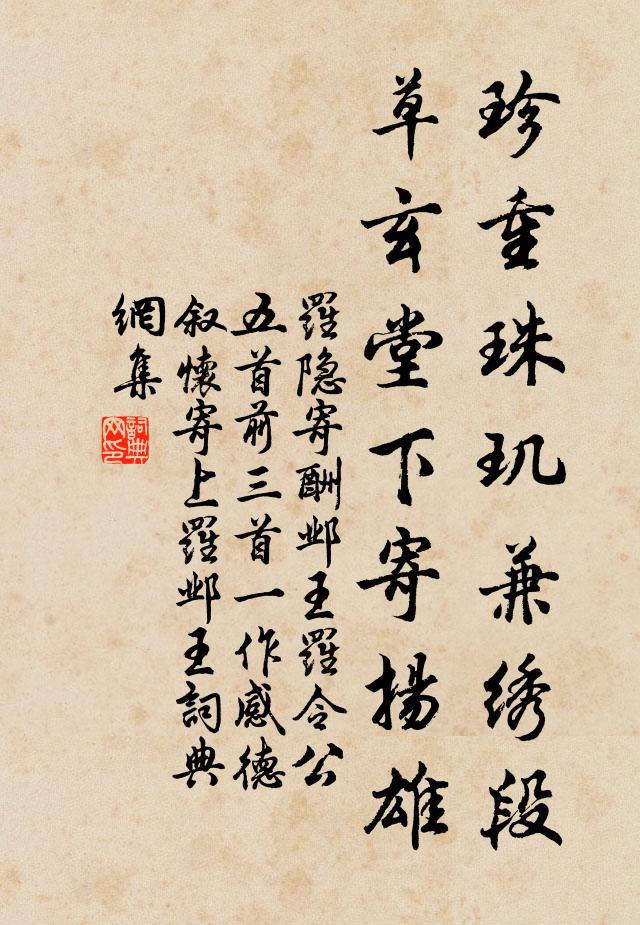 珍重珠玑兼绣段
草玄堂下寄揚雄
羅隐寄酬邺王羅令公
五首前三首一作感德
叙懷寄上羅邺王詞典
網集
詞典
网印